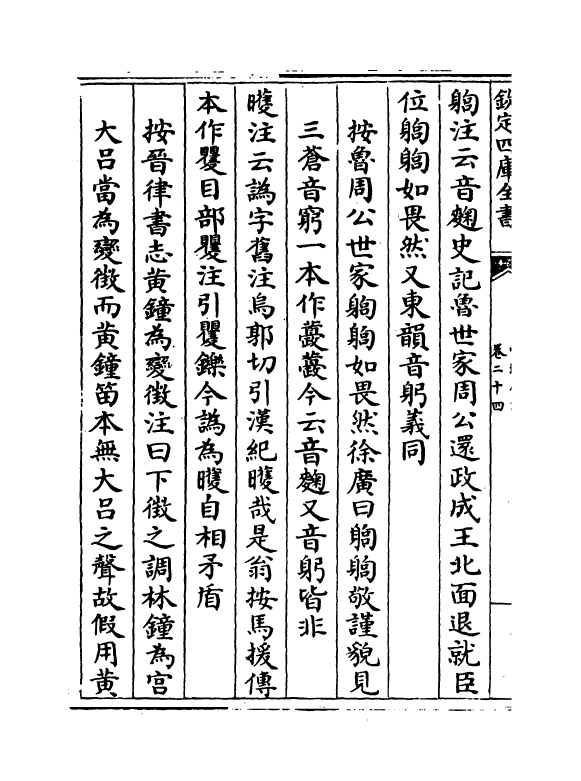 欽定四庫全書
卷二十四
匔注云音麴史記魯世家周公還政成王北面退就臣
位匔匔如畏然又東韻音躬義同
按魯周公世家匔匔如畏然徐廣曰匔匔敬謹貌見
三蒼音窮一本作蘷蘷今云音麴又音躬皆非
矆注云譌字舊注烏郭切引漢紀矆哉是翁按馬援傳
本作矍目部矍注引矍鑠今譌為矆自相矛盾
按晉律書志黄鐘為變徴注曰下徴之調林鐘為宫
大吕當為變徴而黄鐘笛本無大吕之聲故假用黄